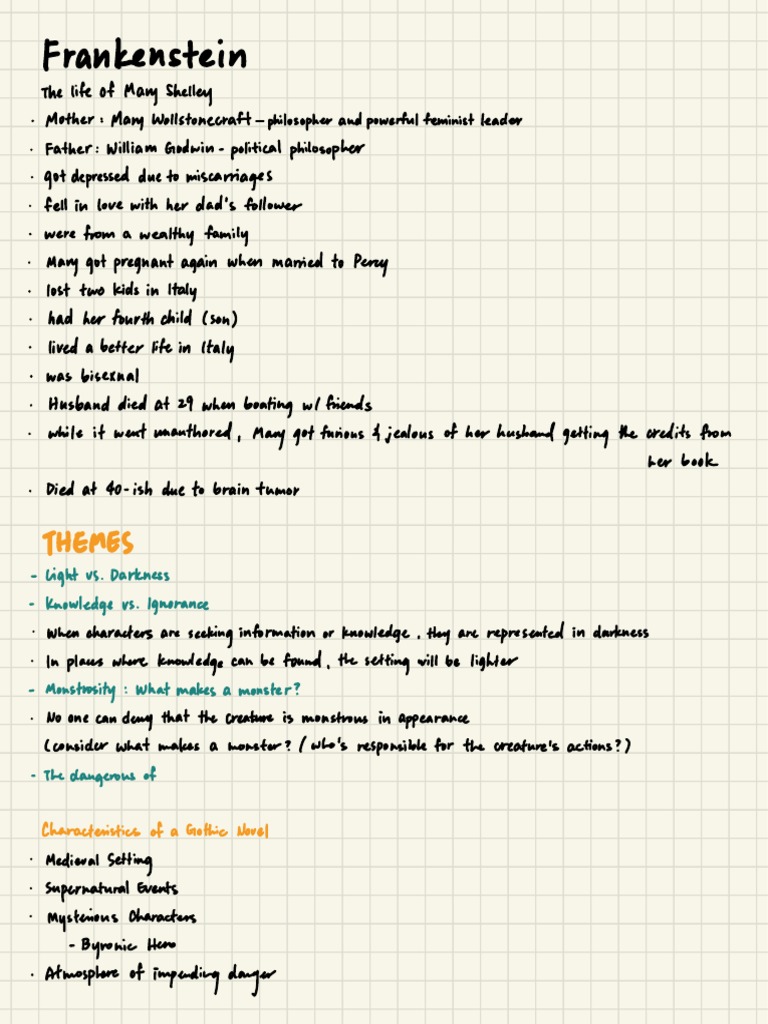 Frankenstein
The life of Mary Shelley
· Mother : Mary Wollstonecraft – philosopher and powerful feminist leader
· Father : William Godwin - political philosopher
· got depressed due to miscarriages
· fell in love with her dad's follower
· were from a wealthy family
· Mary got pregnant again when married to Percy
· lost two kids in Italy
· had her fourth child (son)
· lived a better life in Italy
· was bisexual
· Husband died at 29 when boating w/ friends
· while it went unauthored, Mary got furious & jealous of her husband getting the credits from
her book
· Died at 40-ish due to brain tumor
THEMES
- Light vs. Darkness
- Knowledge vs. Ignorance
· When characters are seeking information or knowledge, they are represented in darkness
· In places where knowledge can be found, the setting will be lighter
- Monstrosity : What makes a monster?
· No one can deny that the creature is monstrous in appearance
(consider what makes a monster? / who's responsible for the creature's actions?)
- The dangerous of
Characteristics of a Gothic Novel
· Medieval Setting
· Supernatural Events
· Mysterious Characters
- Byronic Hero
· Atmosphere of impending danger